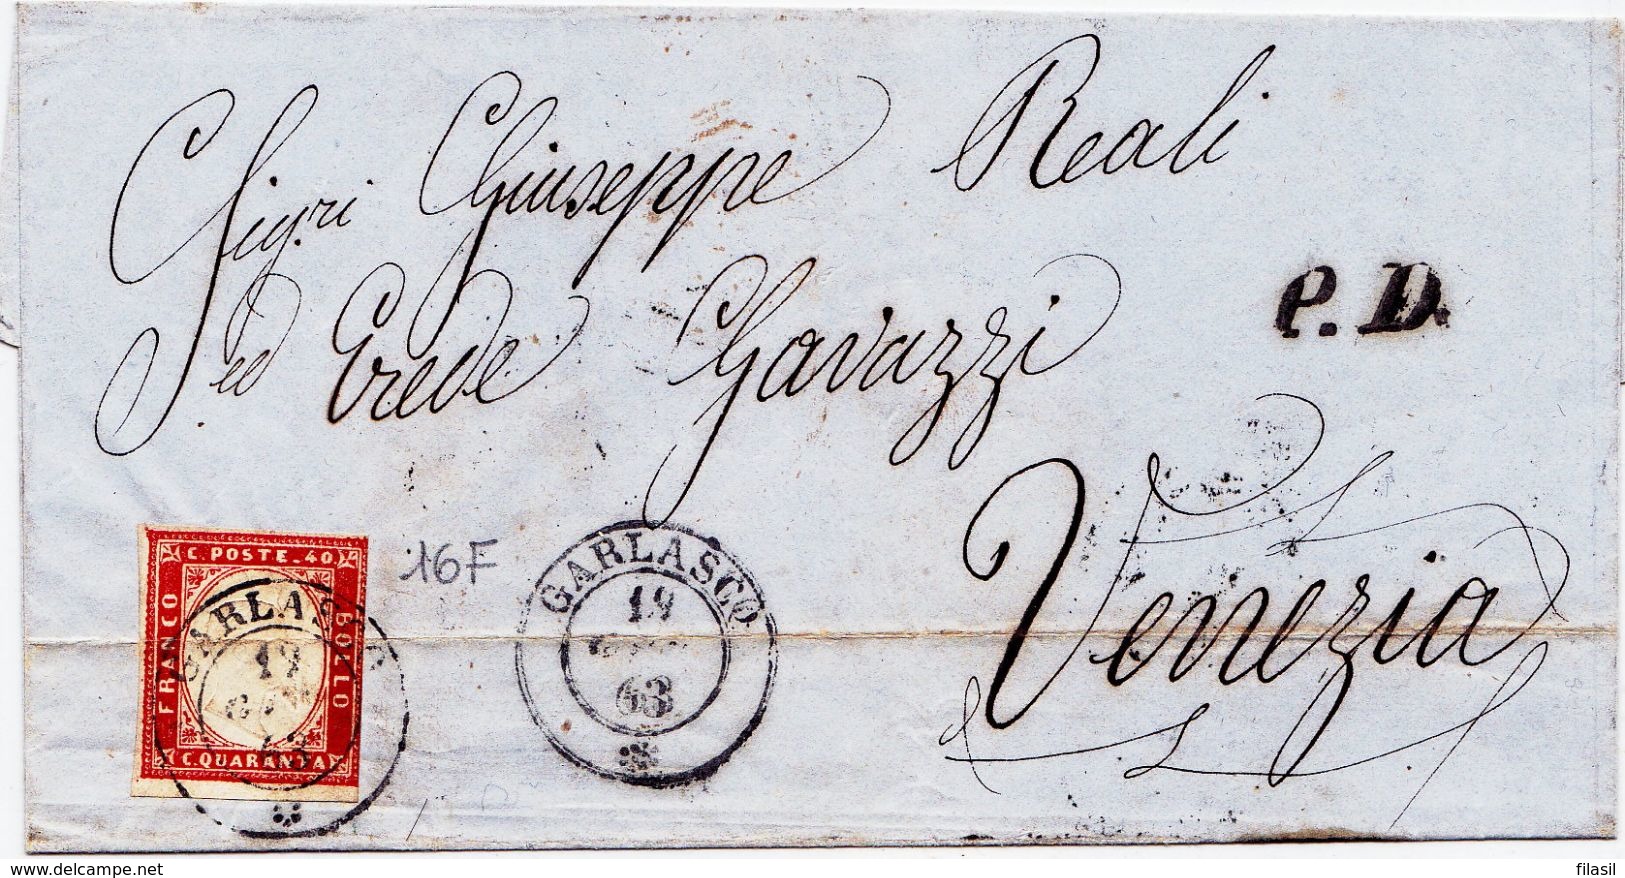 Sigri Giuseppe Reali
ed Erede Gavazzi
P.D.
Venezia
16F
C. POSTE. 40
FRANCO
BOLLO
C. QUARANTA
GARLASCO
19
63
GARLASCO
19
63
delcampe.net
filasil